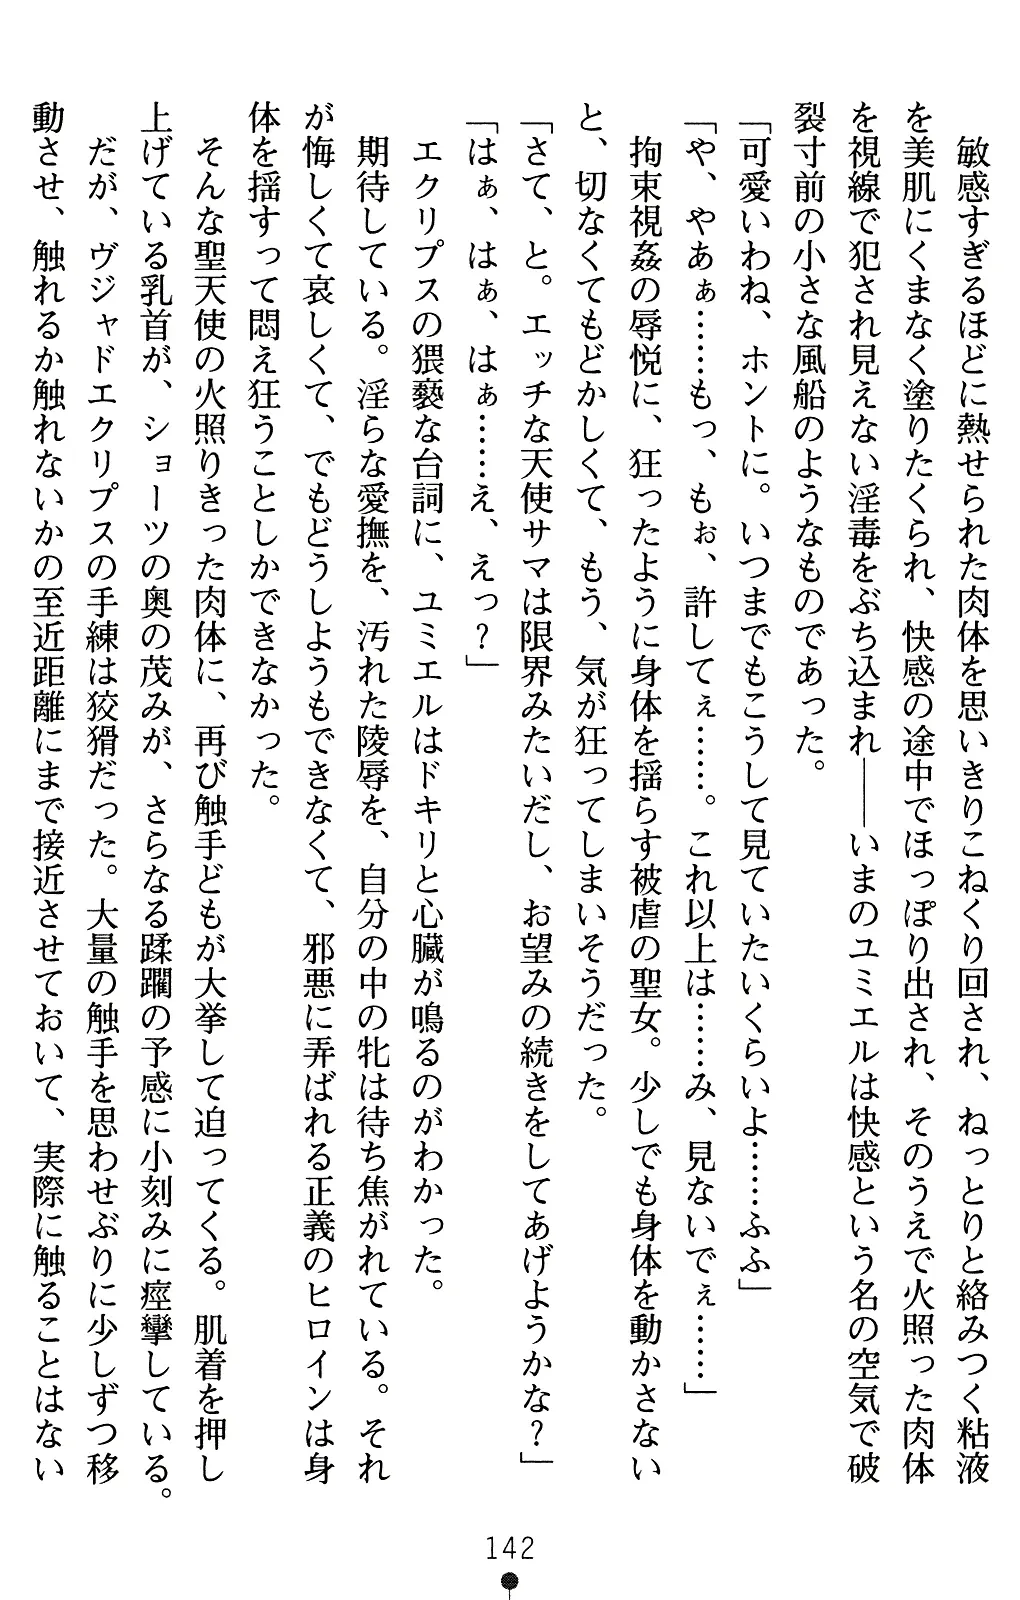 敏感すぎるほどに熱せられた肉体を思いきりこねくり回され、ねっとりと絡みつく粘液
を美肌にくまなく塗りたくられ、快感の途中でほっぽり出され、そのうえで火照った肉体
を視線で犯され見えない淫毒をぶち込まれ――いまのユミエルは快感という名の空気で破
裂寸前の小さな風船のようなものであった。
「可愛いわね、ホントに。いつまでもこうして見ていたいくらいよ……ふふ」
「や、やあぁ……もっ、もぉ、許してぇ……。これ以上は……み、見ないでぇ……」
拘束視姦の辱悦に、狂ったように身体を揺らす被虐の聖女。少しでも身体を動かさない
と、切なくてもどかしくて、もう、気が狂ってしまいそうだった。
「さて、と。エッチな天使サマは限界みたいだし、お望みの続きをしてあげようかな？」
「はぁ、はぁ、はぁ……え、えっ？」
エクリプスの猥褻な台詞に、ユミエルはドキリと心臓が鳴るのがわかった。
期待している。淫らな愛撫を、汚れた陵辱を、自分の中の牝は待ち焦がれている。それ
が悔しくて哀しくて、でもどうしようもできなくて、邪悪に弄ばれる正義のヒロインは身
体を揺すって悶え狂うことしかできなかった。
そんな聖天使の火照りきった肉体に、再び触手どもが大挙して迫ってくる。肌着を押し
上げている乳首が、ショーツの奥の茂みが、さらなる蹂躙の予感に小刻みに痙攣している。
だが、ヴジャドエクリプスの手練は狡猾だった。大量の触手を思わせぶりに少しずつ移
動させ、触れるか触れないかの至近距離にまで接近させておいて、実際に触ることはない
142